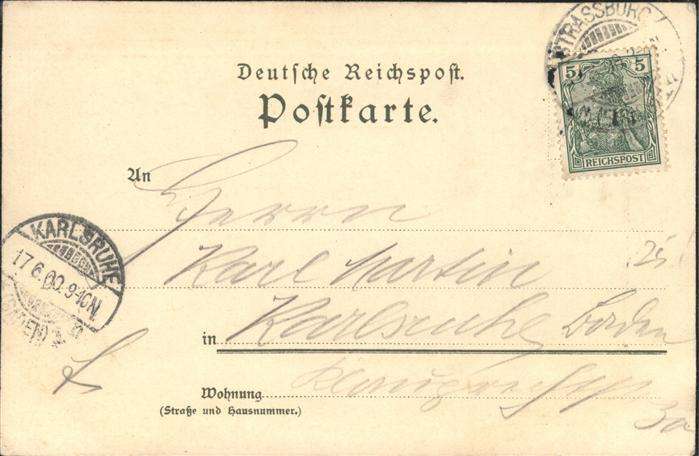 STRASSBURG
5 5
REICHSPOST
Deutsche Reichspost.
Postkarte.
An
Herrn
Karl Martin
in Karlsruhe Baden
Wohnung
(Straße und Hausnummer.)
30
25
KARLSRUHE
17.6.00.9-10N.
(BADEN)